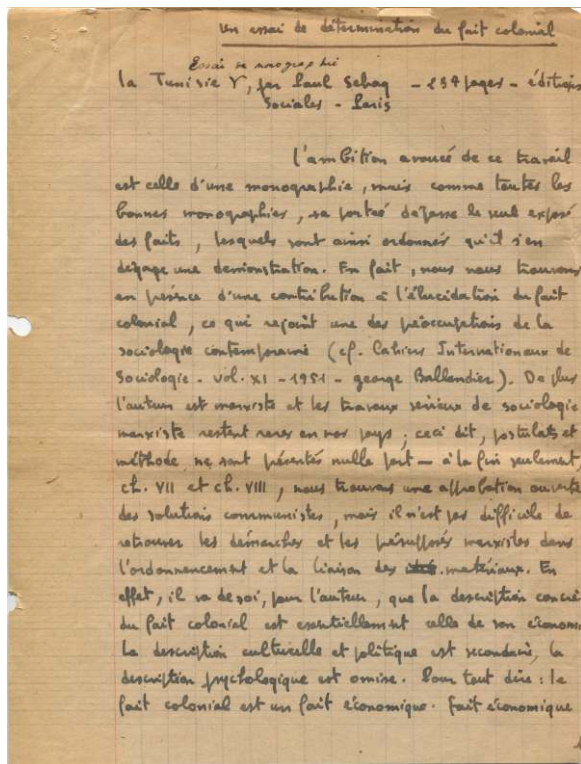 Un essai de détermination du fait colonial
Essai de monographie
la Tunisie Y, par Paul Sebag - 234 pages - éditions
Sociales - Paris
l'ambition avouée de ce travail
est celle d'une monographie, mais comme toutes les
bonnes monographies, sa portée dépasse le seul exposé
des faits, lesquels sont ainsi ordonnés qu'il s'en
dégage une démonstration. En fait, nous nous trouvons
en présence d'une contribution à l'élucidation du fait
colonial, ce qui rejoint une des préoccupations de la
sociologie contemporaine (cf. Cahiers Internationaux de
Sociologie - vol. XI - 1951 - george Ballandier). De plus
l'auteur est marxiste et les travaux sérieux de sociologie
marxiste restent rares en nos pays; ceci dit, postulats et
méthode ne sont présentés nulle part - à la fin seulement
ch. VII et ch. VIII, nous trouvons une approbation ouverte
des solutions communistes, mais il n'est pas difficile de
retrouver les démarches et les présupposés marxistes dans
l'ordonnancement et la liaison des matériaux. En
effet, il va de soi, pour l'auteur, que la description concrè
du fait colonial est essentiellement celle de son économi
la description culturelle et politique est secondaire, la
description psychologique est omise. Pour tout dire: le
fait colonial est un fait économique. Fait économique